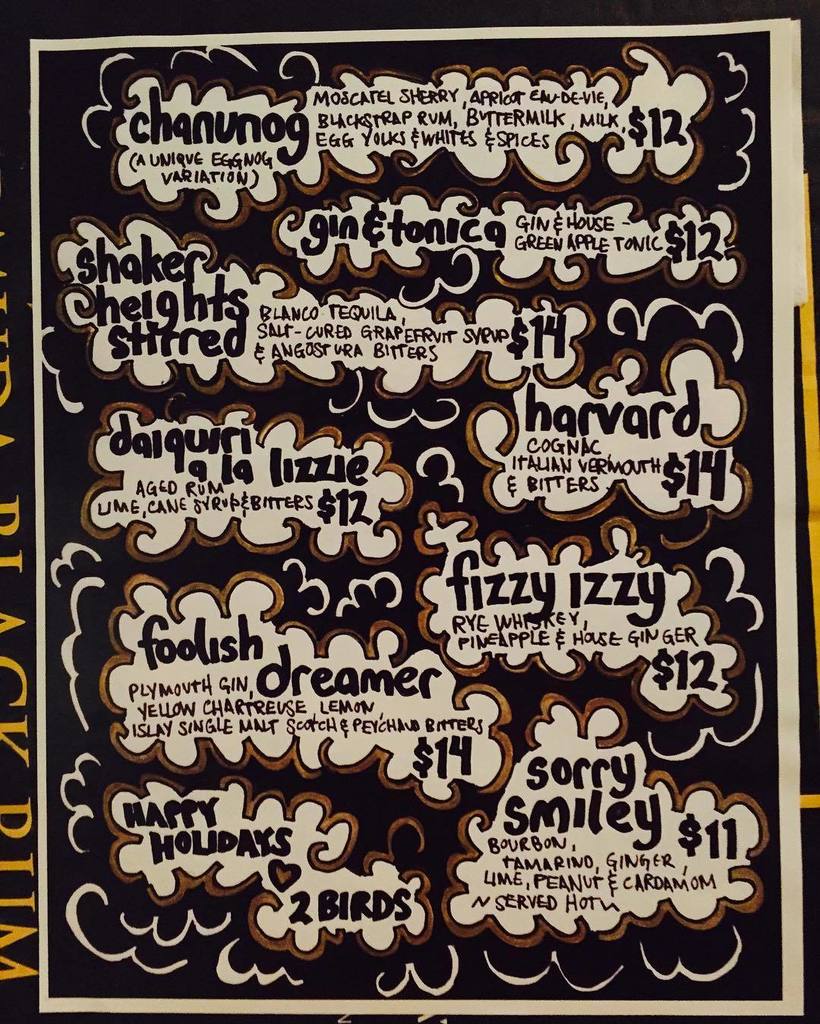 chanunog
(A UNIQUE EGGNOG
VARIATION)
MOSCATEL SHERRY, APRICOT EAU-DE-VIE,
BLACKSTRAP RUM, BUTTERMILK, MILK,
EGG YOLKS & WHITES & SPICES
$12
gin & tonica
GIN & HOUSE-
GREEN APPLE TONIC
$12
shaker
heights
stirred
BLANCO TEQUILA,
SALT-CURED GRAPEFRUIT SYRUP
& ANGOSTURA BITTERS
$14
harvard
COGNAC
ITALIAN VERMOUTH
& BITTERS
$14
daiquiri
a la lizzie
AGED RUM
LIME, CANE SYRUP & BITTERS
$12
fizzy izzy
RYE WHISKEY,
PINEAPPLE & HOUSE GINGER
$12
foolish
dreamer
PLYMOUTH GIN,
YELLOW CHARTREUSE, LEMON,
ISLAY SINGLE MALT SCOTCH & PEYCHAUD BITTERS
$14
sorry
smiley
$11
BOURBON,
TAMARIND, GINGER,
LIME, PEANUT & CARDAMOM
~ SERVED HOT ~
HAPPY
HOLIDAYS
♡
2 BIRDS
BLACK PLUM